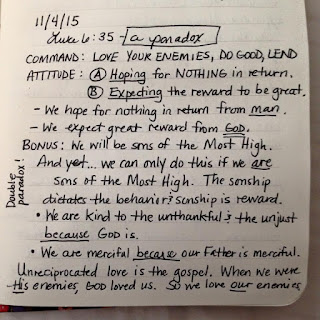 11/4/15
Luke 6:35 - a paradox
COMMAND: LOVE YOUR ENEMIES, DO GOOD, LEND
ATTITUDE: (A) Hoping for NOTHING in return.
(B) Expecting the reward to be great.
- We hope for nothing in return from man.
- We expect great reward from GOD.
BONUS: We will be sons of the Most High.
And yet... we can only do this if we are
sons of the Most High. The sonship
dictates the behavior; sonship is reward.
Double paradox!
• We are kind to the unthankful & the unjust
because GOD is.
• We are merciful because our Father is merciful.
Unreciprocated love is the gospel. When we were
His enemies, GOD loved us. So we love our enemies